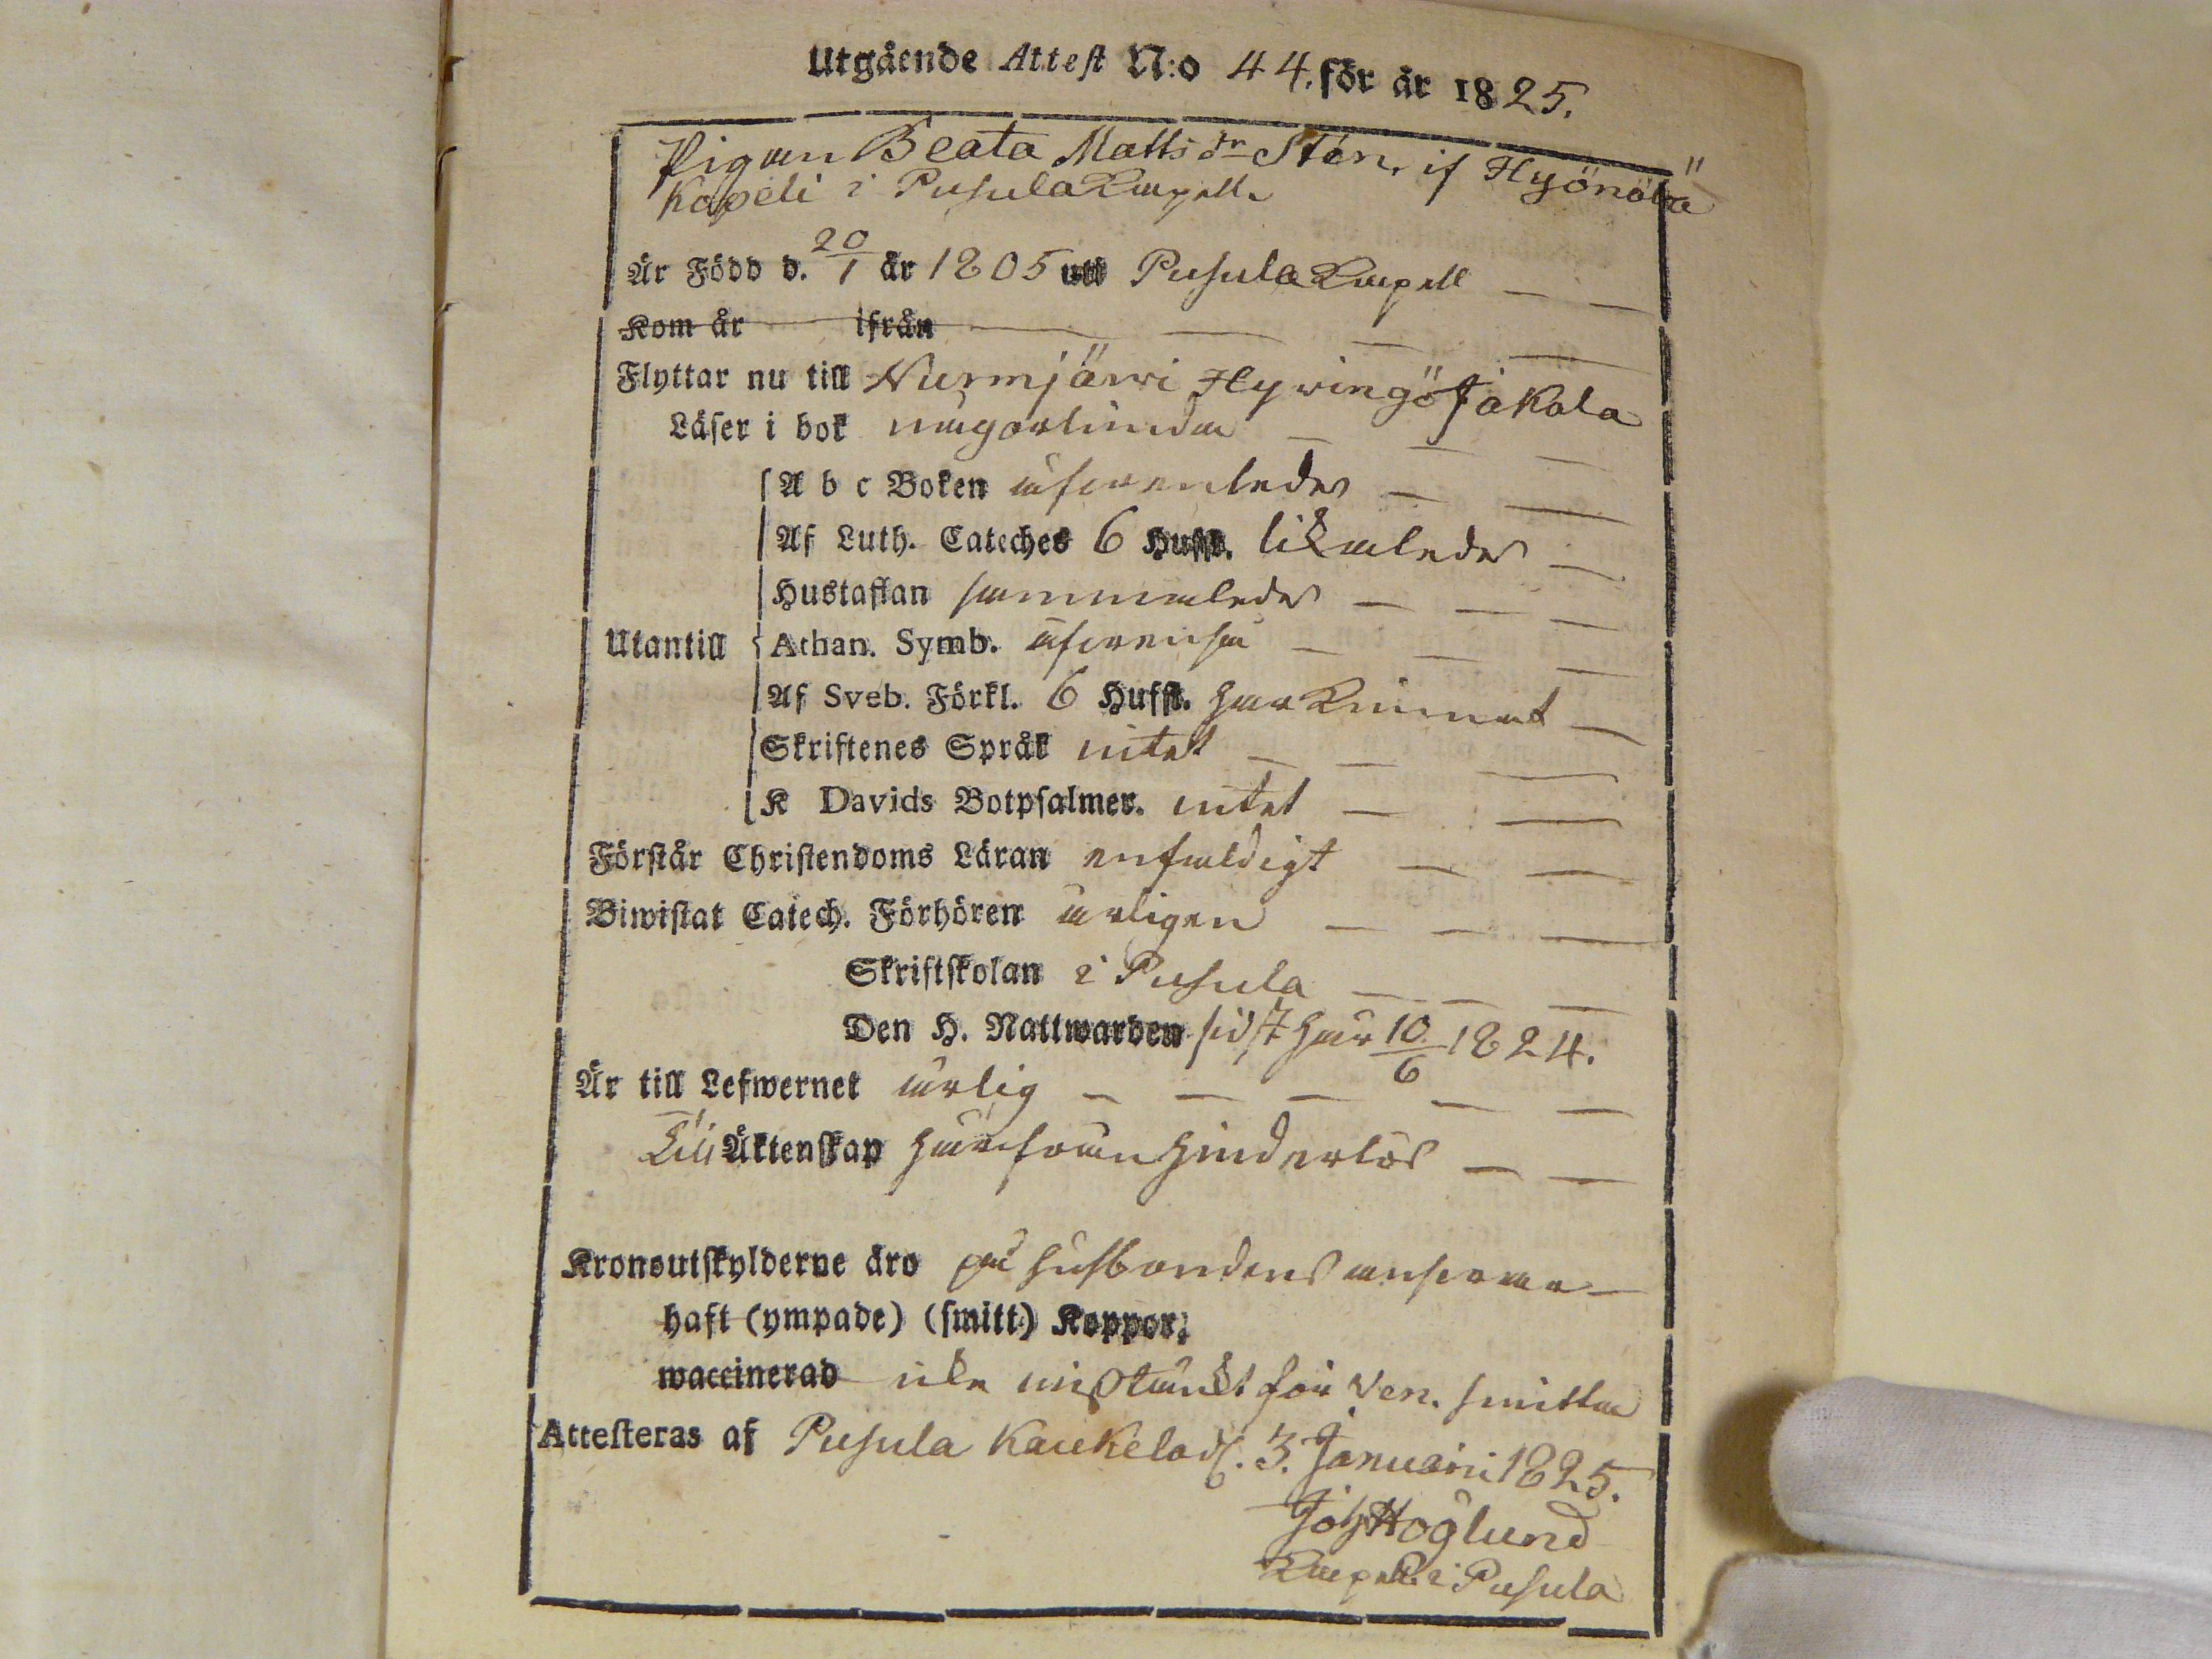 Utgående Attest N:o 44. för år 1825.
Pigan Beata Matts dr Stén, if Hyönölä
Kapeli i Pusula Capell.
Är Född d. 20/1 år 1805 uti Pusula Capell
Kom år ifrån
Flyttar nu till Nurmjärwi Hywingö Jakola
Läser i bok någorlunda
A b c Boken åfwenledes
Af Luth. Cateches 6 Hufst. likaledes
Hustaflan sammaledes
Utantill Athan. Symb. äfwenså
Af Sveb. Förkl. 6 Hufst. har kunnat
Skriftenes Språk intet
K Davids Botpsalmer. intet
Förstår Christendoms Läran enfaldigt
Biwistat Catech. Förhören årligen
Skriftskolan i Pusula
Den H. Nattwarden sidst här 10/6 1824.
Är till Lefwernet ärlig
Till Äktenskap härifrån hinderlös
Kronoutskylderne äro på husbondens answar
haft (ympade) (smitt) Koppor;
waccinerad icke misstänkt för Ven. smitta
Attesteras af Pusula Kaukela d. 3. Januarii 1825.
Joh Höglund
Capell. i Pusula